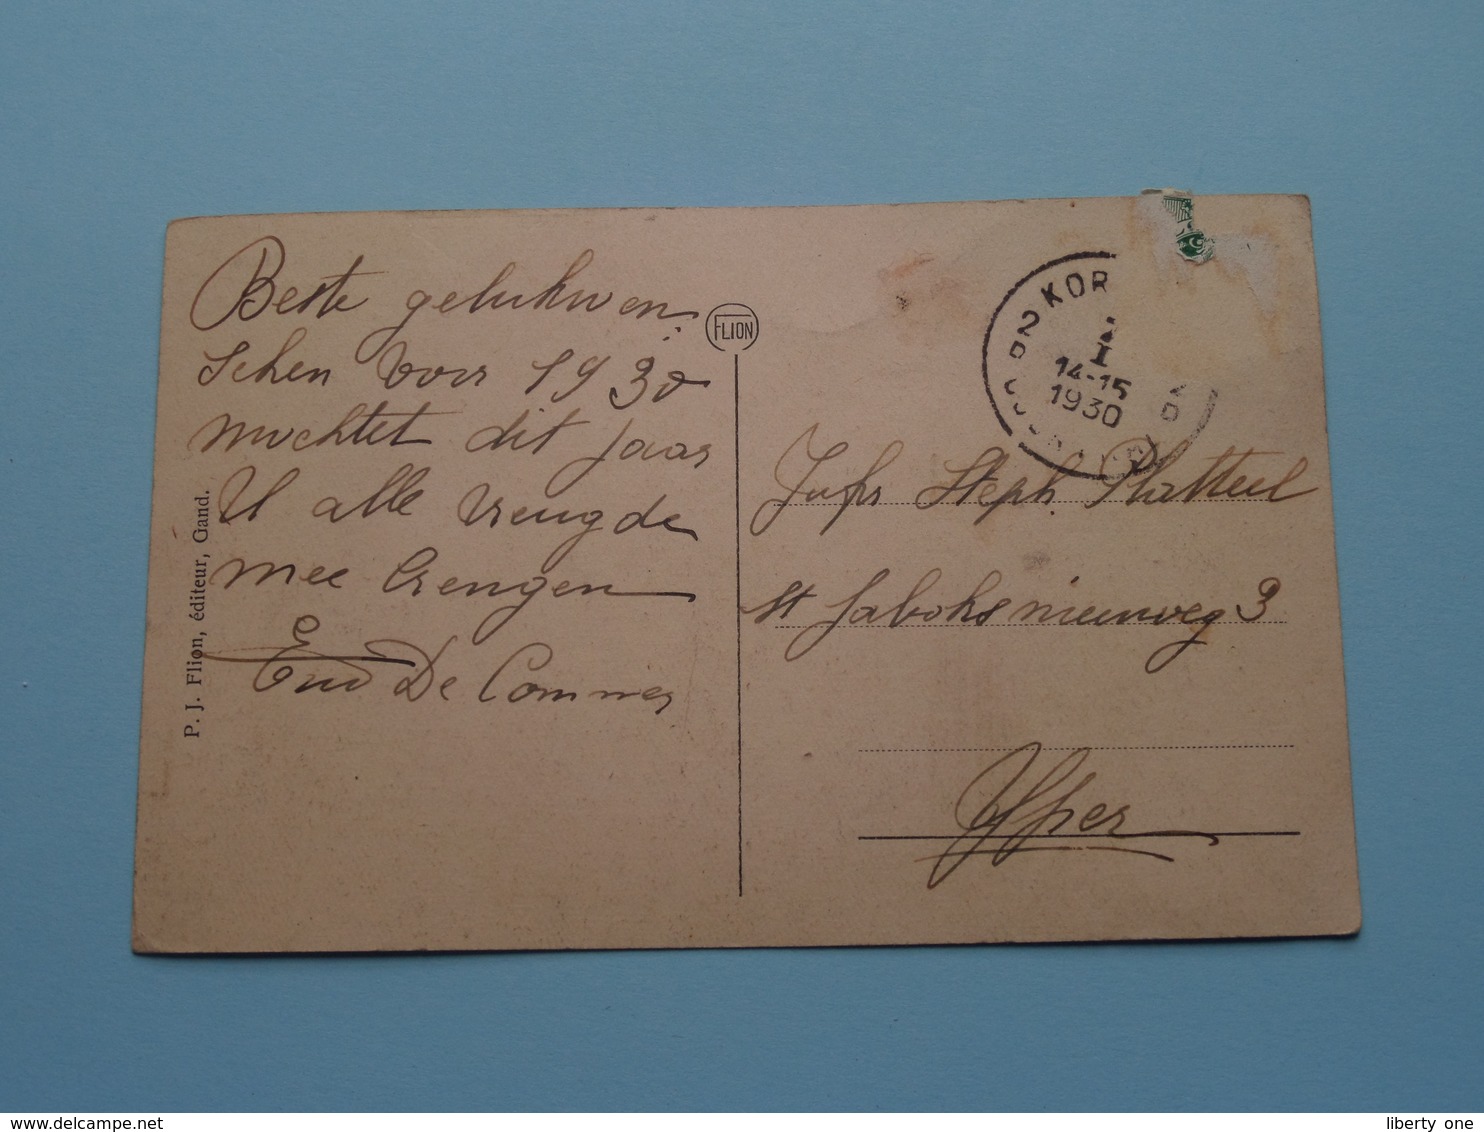 Beste gelukwen
schen voor 1930
mochtet dit jaar
U alle vreugde
mee brengen
De Commer
P. J. Flion, éditeur, Gand.
FLION
2 KOR
I
14-15
1930
Jufr Steph Platteel
St Jakobs nieuweg 3
Yper
www.delcampe.net
liberty one